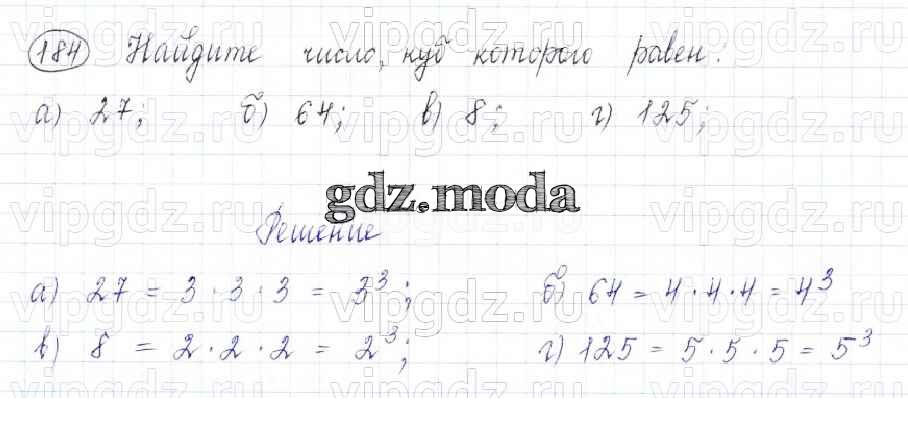 184 Найдите число, куб которого равен:
а) 27; б) 64; в) 8; г) 125;
gdz.moda
Решение
а) 27 = 3 · 3 · 3 = 3³; б) 64 = 4 · 4 · 4 = 4³
в) 8 = 2 · 2 · 2 = 2³; г) 125 = 5 · 5 · 5 = 5³